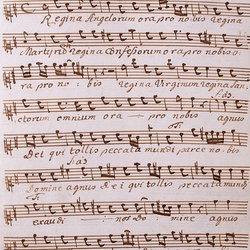 Regina Angelorum ora pro nobis Regina
Martyrū Regina Confessorum ora pro nobis o:
ra pro no : bis Regina Virginum regina San:
Solo
ctorum omnium ora pro nobis agnus
Dei qui tollis peccata mundi parce nobis
Solo
Domine agnus Dei qui tollis peccata mundi
exaudi : nos Do mine agnus